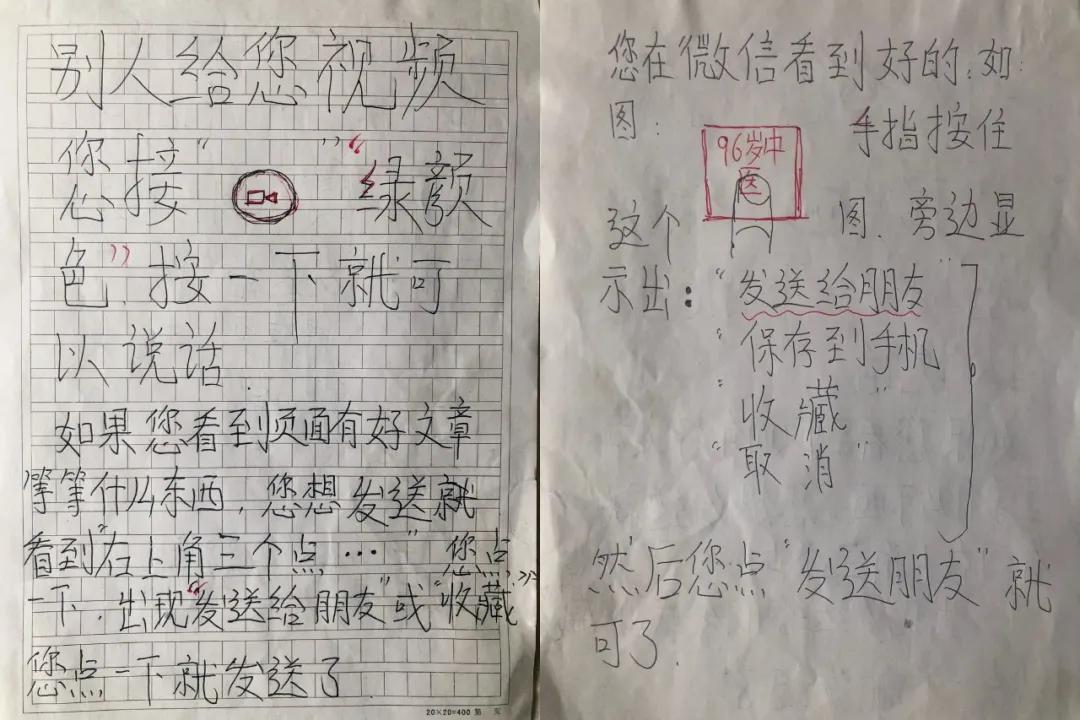 别人给您视频
您接“ ”“绿颜
色”，按一下就可
以说话.
如果您看到页面有好文章
等等什么东西，您想发送就
看到“右上角三个点…”您点
一下，出现“发送给朋友”或“收藏”
您点一下就发送了
20×20=400 第 页
您在“微信看到好的，如：
图：
96岁中
医
手指按住
这个
图，旁边显
示出：“发送给朋友”
“保存到手机
“收藏”
“取消”
然后您点“发送朋友”就
可了.